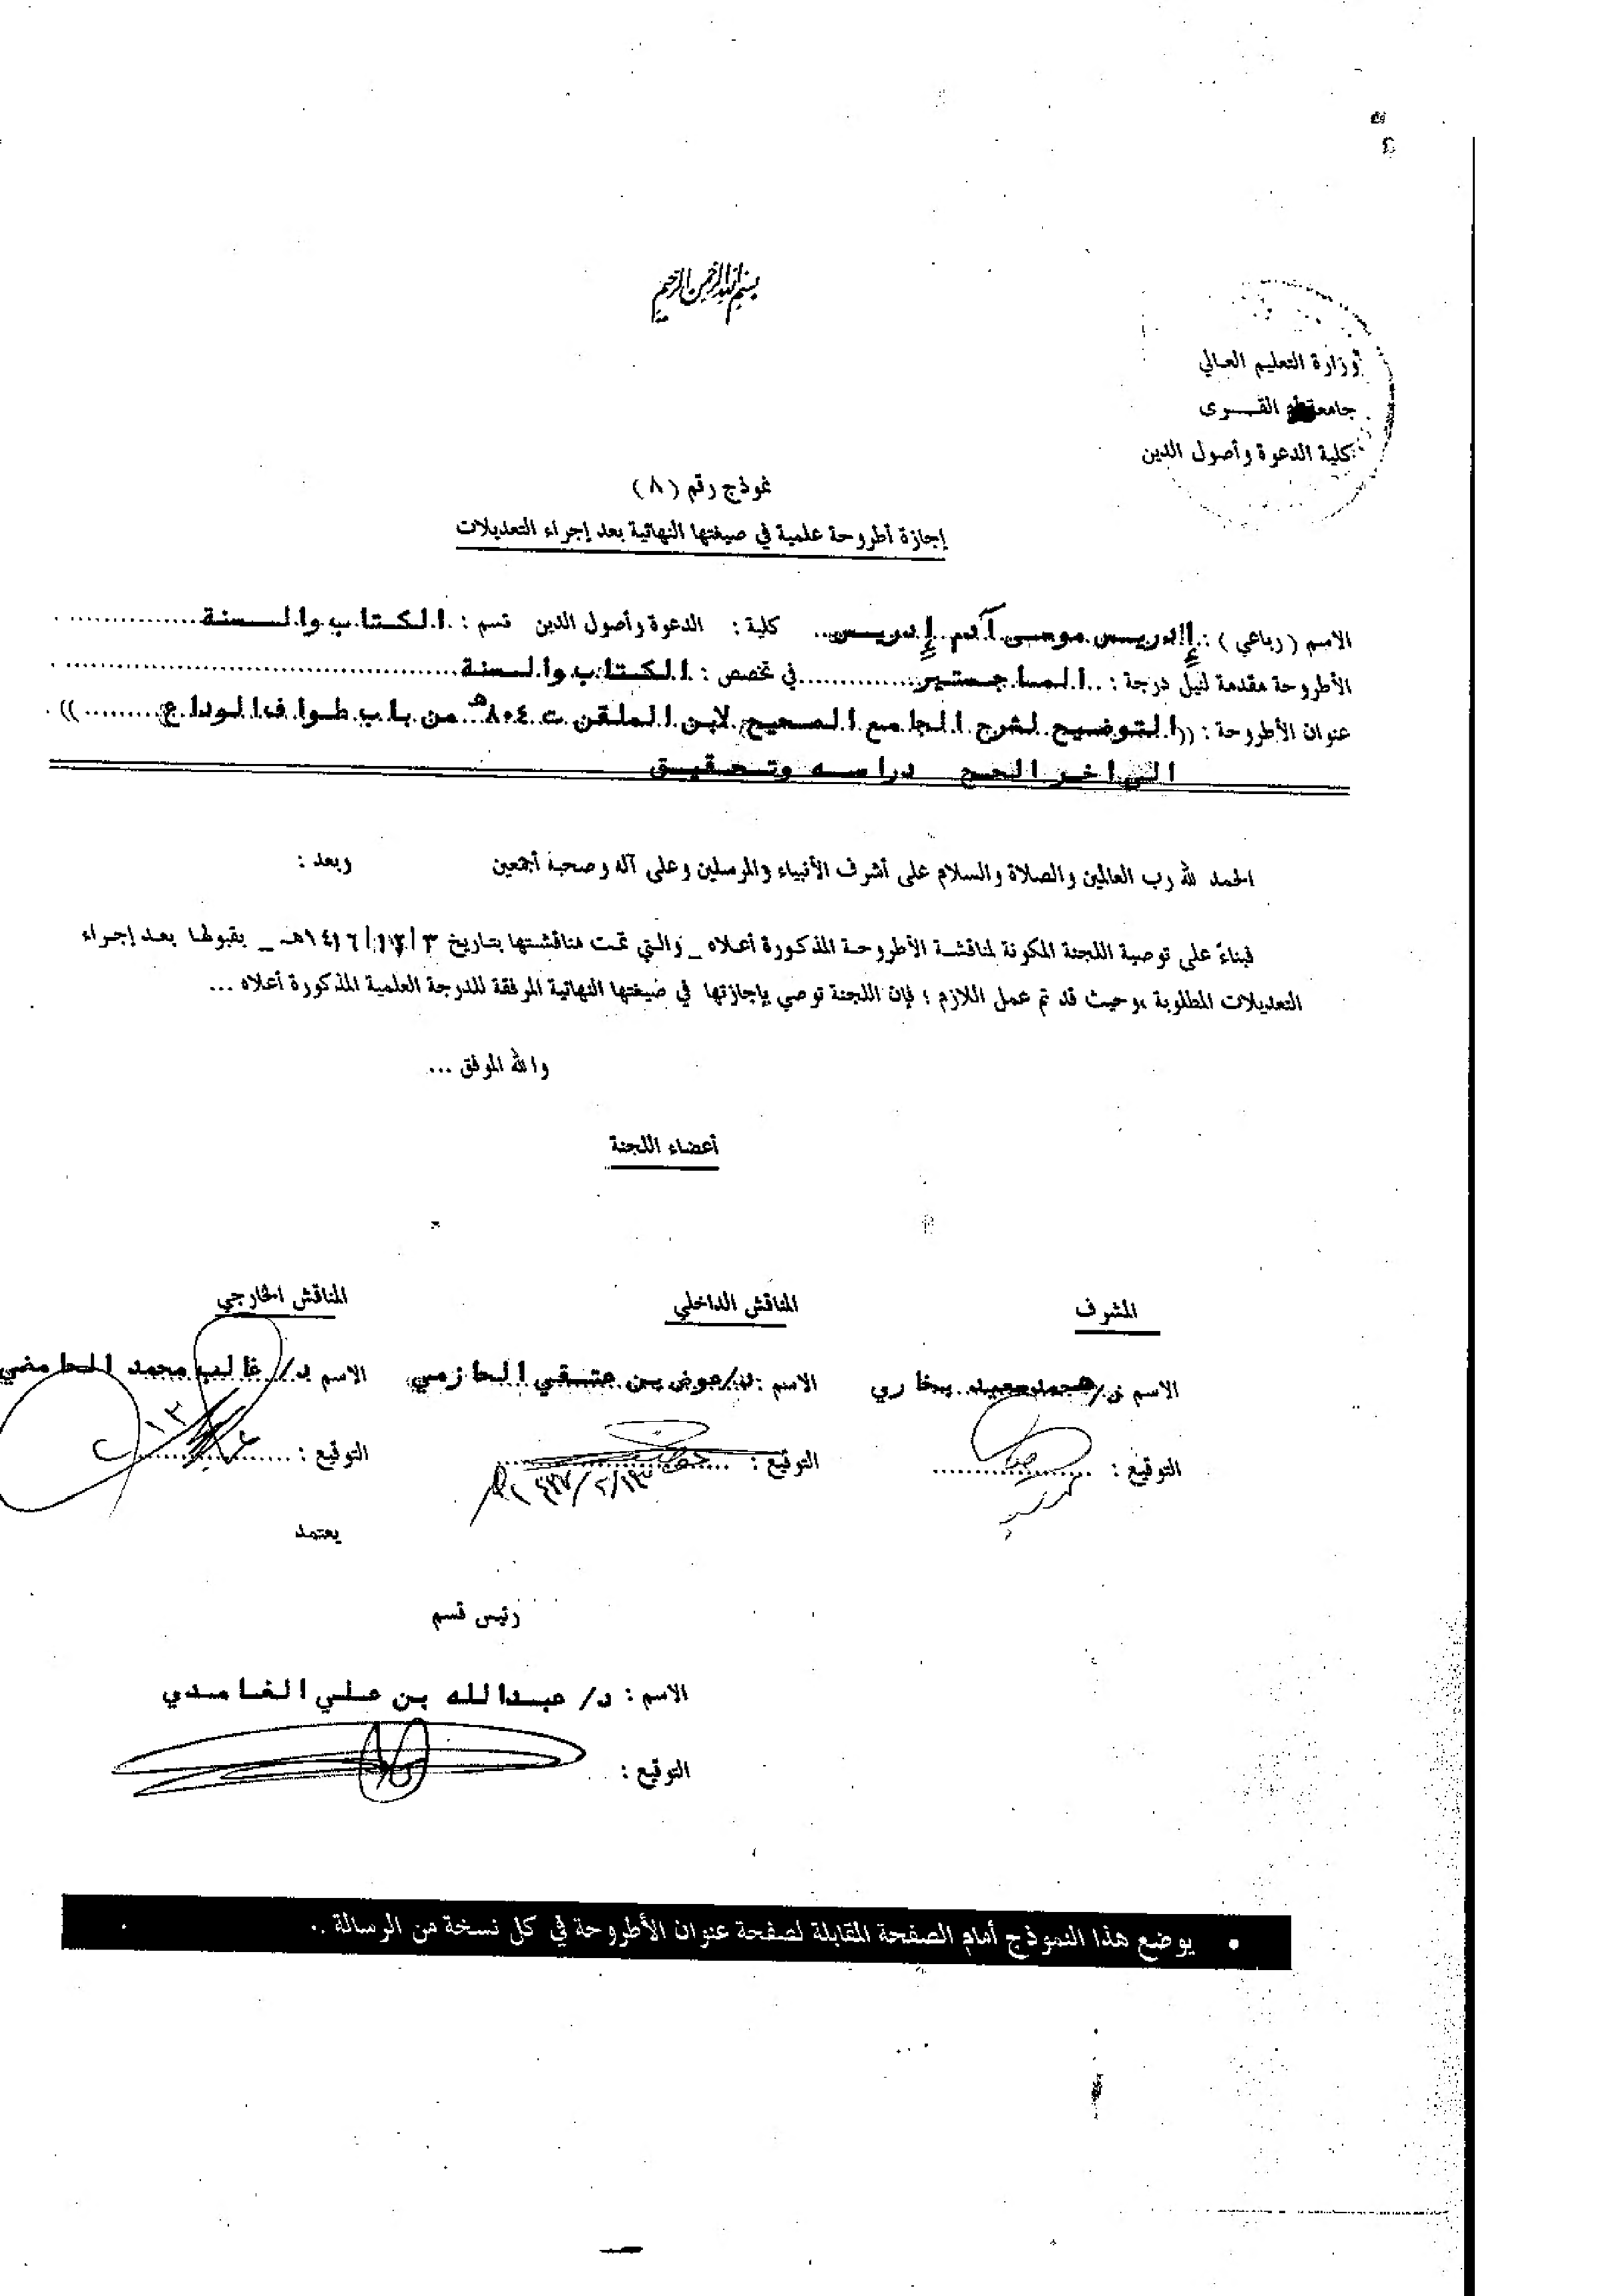 بسم الله الرحمن الرحيم
وزارة التعليم العالي
جامعة أم القــرى
كلية الدعوة وأصول الدين
نموذج رقم (٨)
إجازة أطروحة علمية في صيغتها النهائية بعد إجراء التعديلات
الاسم (رباعي) : إدريس موسى آدم إدريس كلية : الدعوة وأصول الدين قسم : الكتاب والسنة
الأطروحة مقدمة لنيل درجة : الماجستير في تخصص : الكتاب والسنة
عنوان الأطروحة : ((التوضيح لشرح الجامع الصحيح لابن الملقن ت ٨٠٤هـ من باب طواف الوداع ))
الى اخر الحج دراسه وتحقيق
الحمد لله رب العالمين والصلاة والسلام على أشرف الأنبياء والمرسلين وعلى آله وصحبه أجمعين وبعد :
فبناءً على توصية اللجنة المكونة لمناقشة الأطروحة المذكورة أعلاه _ والتي تمت مناقشتها بتاريخ _ بقبولها بعد إجراء
التعديلات المطلوبة ، وحيث قد تم عمل اللازم ؛ فإن اللجنة توصي بإجازتها في صيغتها النهائية المرفقة للدرجة العلمية المذكورة أعلاه ...
والله الموفق ...
أعضاء اللجنة
المشرف المناقش الداخلي المناقش الخارجي
الاسم د/ بخاري الاسم : د/عوض بن عتقي الحازمي الاسم د/ غالب محمد الحامضي
التوقيع : التوقيع : التوقيع :
يعتمد
رئيس قسم
الاسم : د/ عبدالله بن علي الغامدي
التوقيع :
• يوضع هذا النموذج أمام الصفحة المقابلة لصفحة عنوان الأطروحة في كل نسخة من الرسالة ..